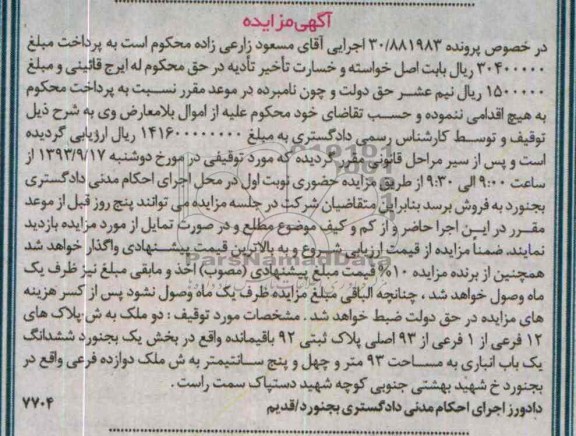 آگهی مزایده
در خصوص پرونده ۳۰/۸۸۱۹۸۳ اجرایی آقای مسعود زارعی زاده محکوم است به پرداخت مبلغ
۳۰۴۰۰۰۰۰ ریال بابت اصل خواسته و خسارت تأخیر تأدیه در حق محکوم له ایرج قائینی و مبلغ
۱۵۰۰۰۰۰ ریال نیم عشر حق دولت و چون نامبرده در موعد مقرر نسبت به پرداخت محکوم
به هیچ اقدامی ننموده و حسب تقاضای خود محکوم علیه از اموال بلامعارض وی به شرح ذیل
توقیف و توسط کارشناس رسمی دادگستری به مبلغ ۱۴۱۶۰۰۰۰۰۰۰۰ ریال ارزیابی گردیده
است و پس از سیر مراحل قانونی مقرر گردیده که مورد توقیفی در مورخ دوشنبه ۱۳۹۳/۹/۱۷ از
ساعت ۹:۰۰ الی ۹:۳۰ از طریق مزایده حضوری نوبت اول در محل اجرای احکام مدنی دادگستری
بجنورد به فروش برسد بنابراین متقاضیان شرکت در جلسه مزایده می توانند پنج روز قبل از موعد
مقرر در این اجرا حاضر و از کم و کیف موضوع مطلع و در صورت تمایل از مورد مزایده بازدید
نمایند. ضمنا مزایده از قیمت ارزیابی شروع و به بالاترین قیمت پیشنهادی واگذار خواهد شد
همچنین از برنده مزایده ۱۰% قیمت مبلغ پیشنهادی (مصوب) اخذ و مابقی مبلغ نیز ظرف یک
ماه وصول خواهد شد ، چنانچه الباقی مبلغ مزایده ظرف یک ماه وصول نشود پس از کسر هزینه
های مزایده در حق دولت ضبط خواهد شد . مشخصات مورد توقیف : دو ملک به ش-پلاک های
۱۲ فرعی از ۱ فرعی از ۹۳ اصلی پلاک ثبتی ۹۲ باقیمانده واقع در بخش یک بجنورد ششدانگ
یک باب انباری به مساحت ۹۳ متر و چهل و پنج سانتیمتر به ش ملک دوازده فرعی واقع در
بجنورد خ شهید بهشتی جنوبی کوچه شهید دستپاک سمت راست .
دادورز اجرای احکام مدنی دادگستری بجنورد/قدیم
۷۷۰۴
ParsNamadData